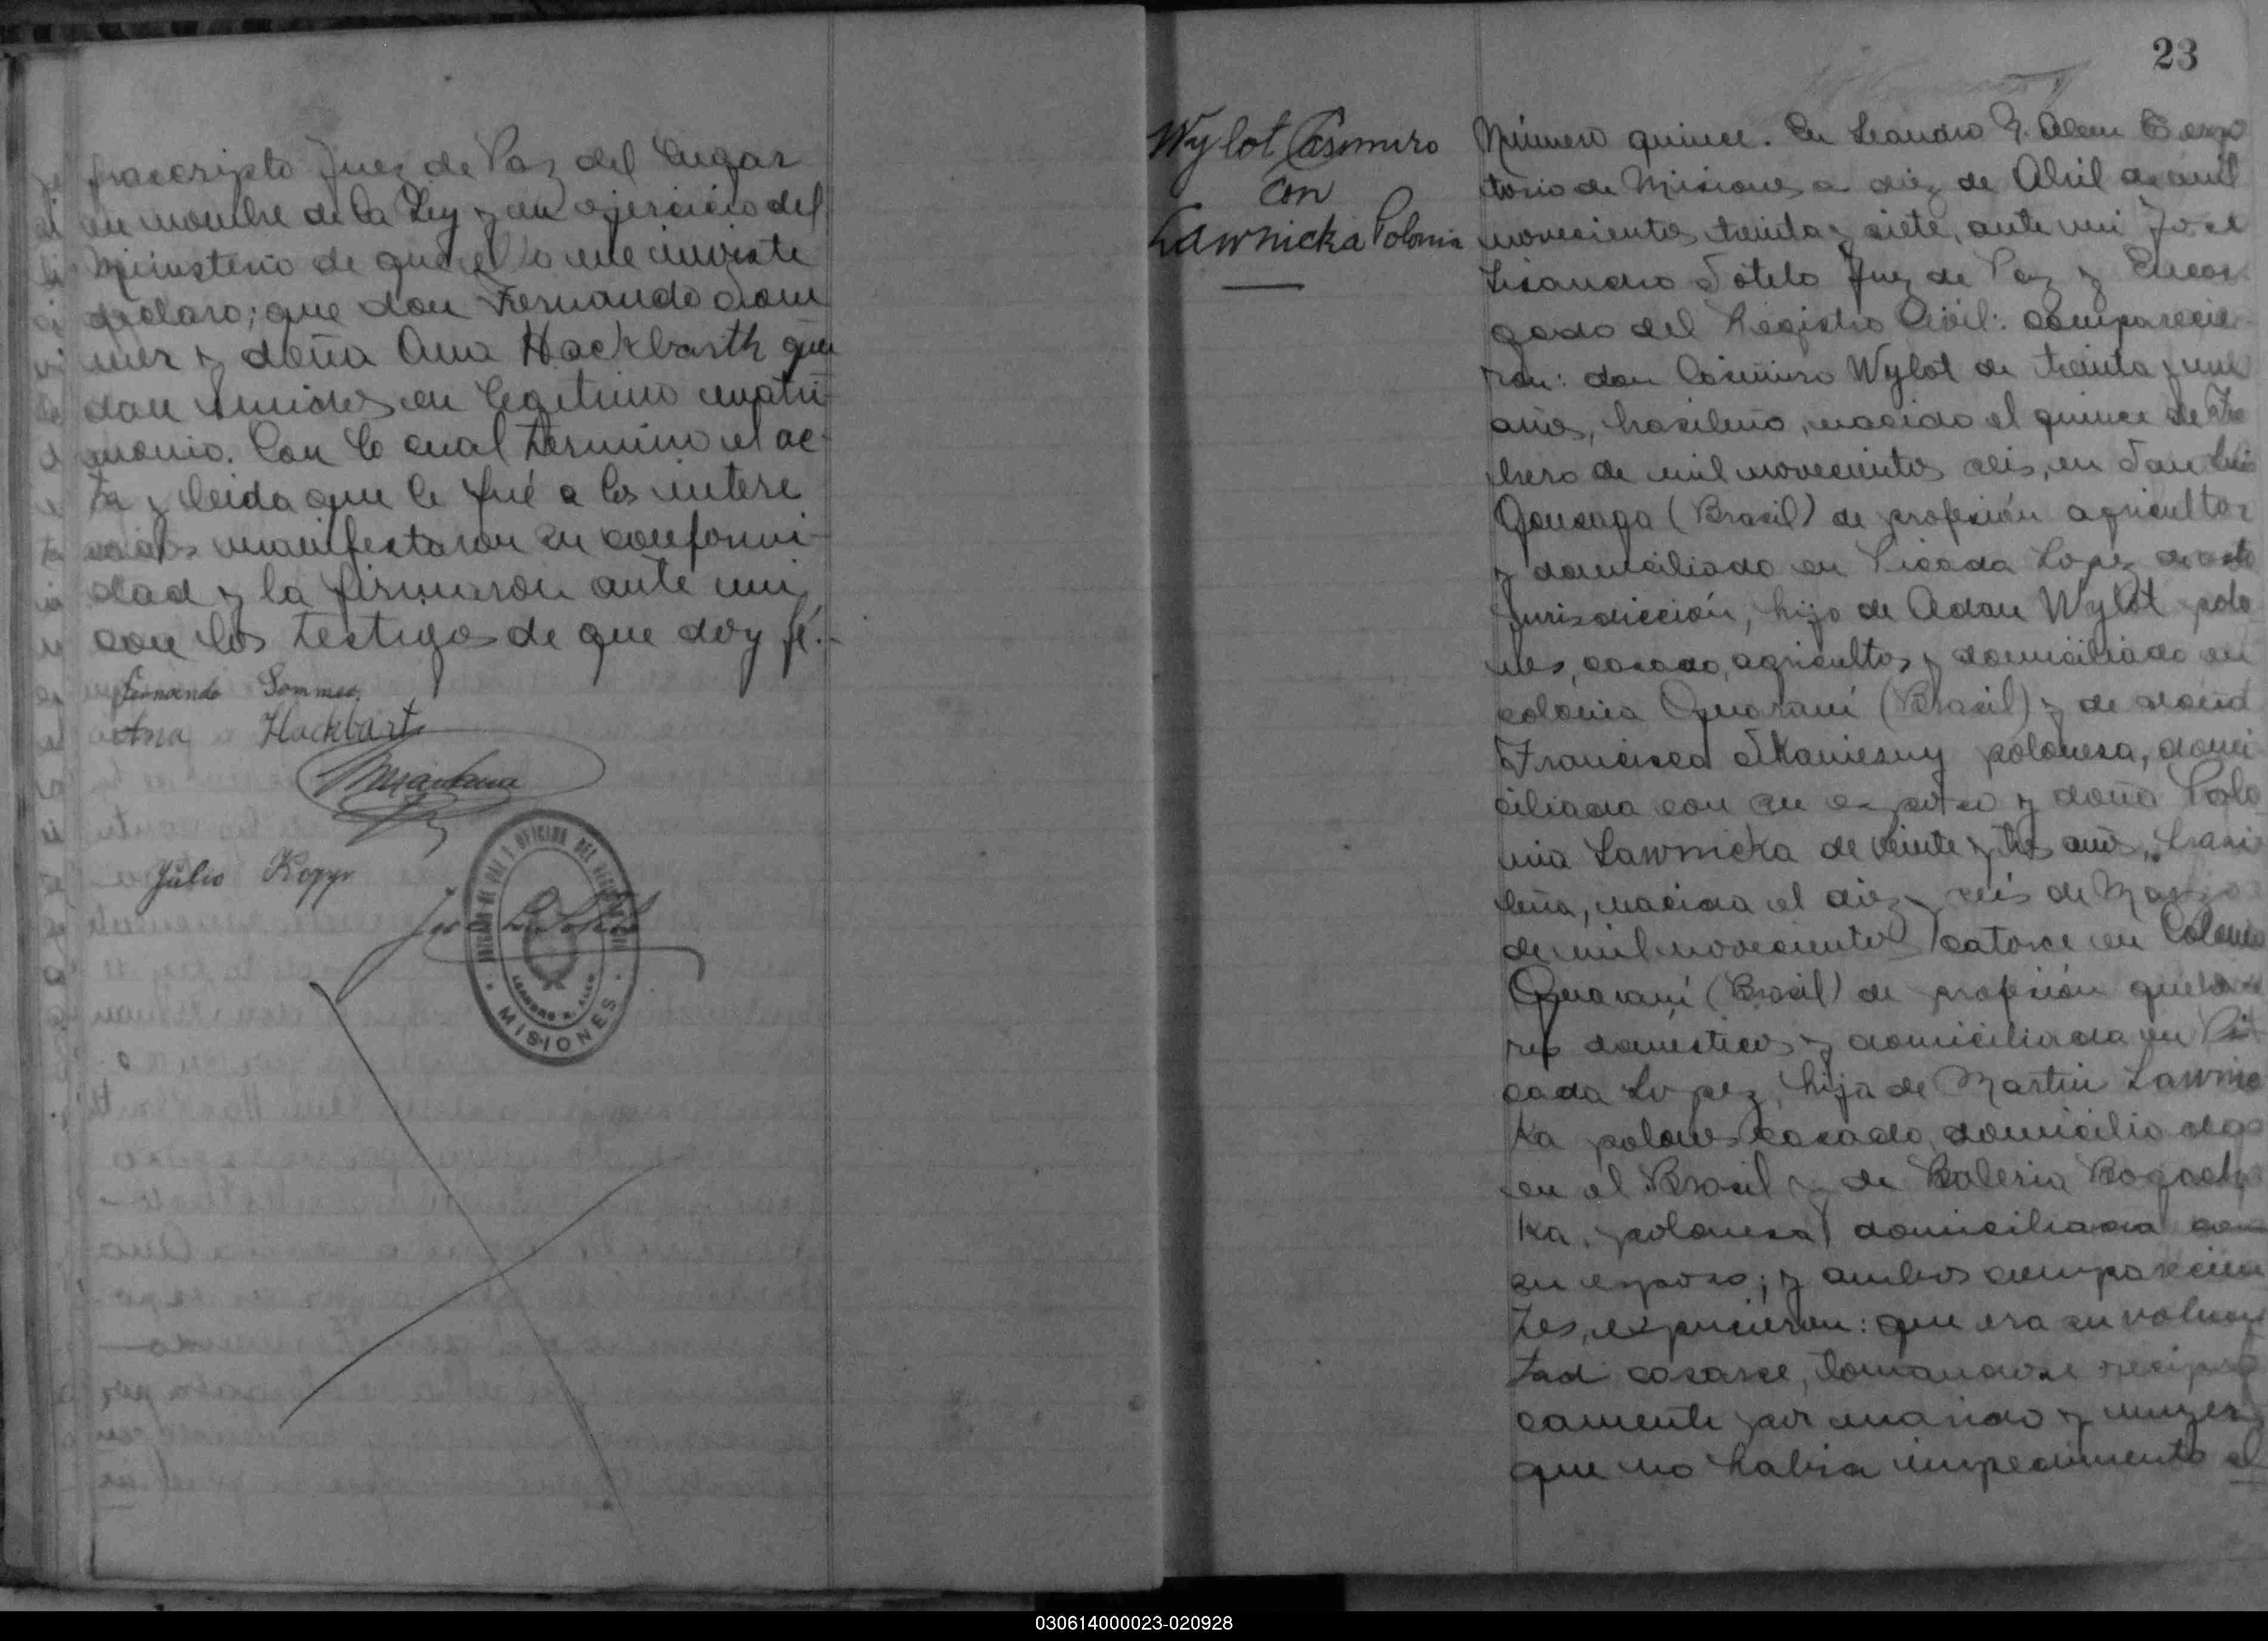 frascripto Juez de Paz del Lugar
en nombre de la Ley y en ejercicio del
Ministerio de que ella me inviste
declaro; que don Fernando Som
mer y doña Ana Hackbarth que
dan unidos en legitimo matri-
monio. Con lo cual termino el ac-
ta y leida que le fué a los intere
sados manifestaron su conformi-
dad y la firmaron ante mi
con los testigos de que doy fé.-
Fernando Sommer
Ana Hackbart
Julio Kopp
José L. Sotelo
JUZGADO DE PAZ Y OFICINA DEL REGISTRO CIVIL
LEANDRO N. ALEM
MISIONES
23
Wylot Casimiro
con
Lawnicka Polonia
Número quince. En Leandro N. Alem Terri
torio de Misiones a diez de Abril de mil
novecientos treinta y siete, ante mi José
Lisandro Sotelo Juez de Paz y Encar
gado del Registro Civil: comparecie
ron: don Casimiro Wylot de treinta y un
años, brasileño, nacido el quince de Fe
brero de mil novecientos seis, en San Luis
Gonzaga (Brasil) de profesión agricultor
y domiciliado en Picada Lopez de esta
Jurisdicción, hijo de Adan Wylot pola
nes, casado, agricultor y domiciliado en
colonia Guaraní (Brasil) y de doña
Francisca polonesa, domi
ciliada con su esposo y doña Polo
nia Lawnicka de veinte y tres años, brasi
leña, nacida el diez y seis de Marzo
de mil novecientos catorce en Colonia
Guaraní (Brasil) de profesión quehace
res domésticos y domiciliada en Pi
cada Lopez, hija de Martin Lawnic
ka polones casado, domiciliado
en el Brasil y de Valeria
ka, polonesa domiciliada con
su esposo; y ambos comparecien
tes, expusieron: que era su volun
tad casarse, tomandose recipro
camente por marido y mujer
que no habia impedimento al
030614000023-020928